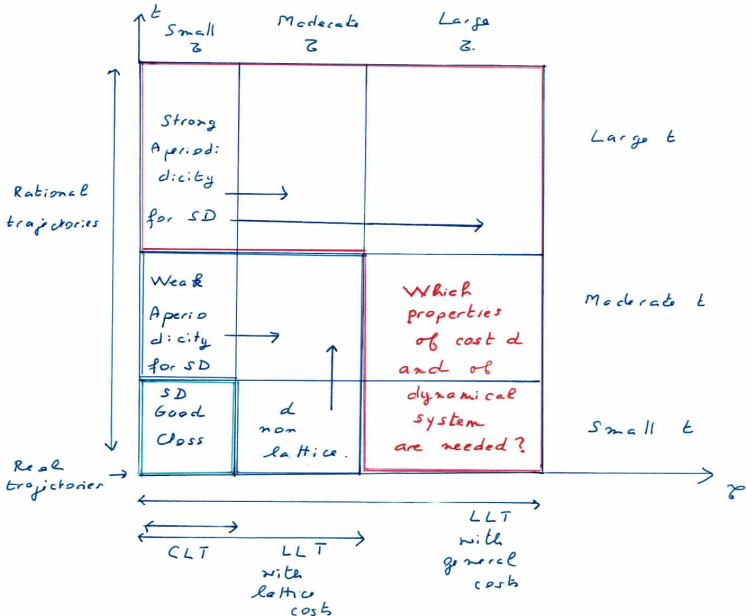 t
Small
τ
Moderate
τ
Large
τ.
Strong
Aperiodi
dicity
for SD
Large t
Rational
trajectories
Weak
Aperio
dicity
for SD
Which
properties
of cost d
and of
dynamical
system
are needed?
Moderate t
SD
Good
Class
d
non
lattice.
Small t
Real
trajectories
τ
CLT
LLT
with
lattice
costs
LLT
with
general
costs